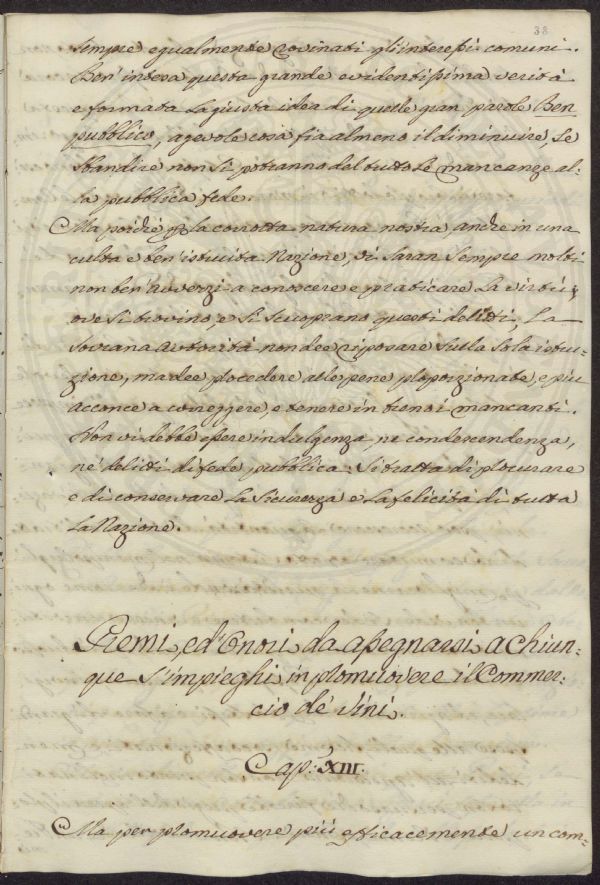 38
sempre egualmente rovinati gl'interessi comuni.
Ben' intesa questa grande evidentissima verità
e formata la giusta idea di quelle gran parole Ben
pubblico, agevole cosa fia almeno il diminuire, se
sbandire non si potranno del tutto le mancanze al-
la pubblica fede.
Ma poiché p la corrotta natura nostra, anche in una
culta e ben' istruita Nazione, vi saran sempre molti
non ben' avvezzi a conoscere e praticare la virtù;
ove si trovino, e si scuoprano questi delitti, la
Sovrana autorità non dee riposare sulla sola istru-
zione, ma dee procedere alle pene proporzionate, e più
acconce a correggere, e tenere in freno i mancanti.
Non vi debbe essere indulgenza, ne condescendenza,
né delitti di fede pubblica: Si tratta di procurare
e di conservare la sicurezza e la felicità di tutta
la Nazione.
Premi, ed' Onori da assegnarsi a chiun-
que s'impieghi in promuovere il Commer-
cio de' Vini.
Cap: XIII.
Ma per promuovere più efficacemente un com-